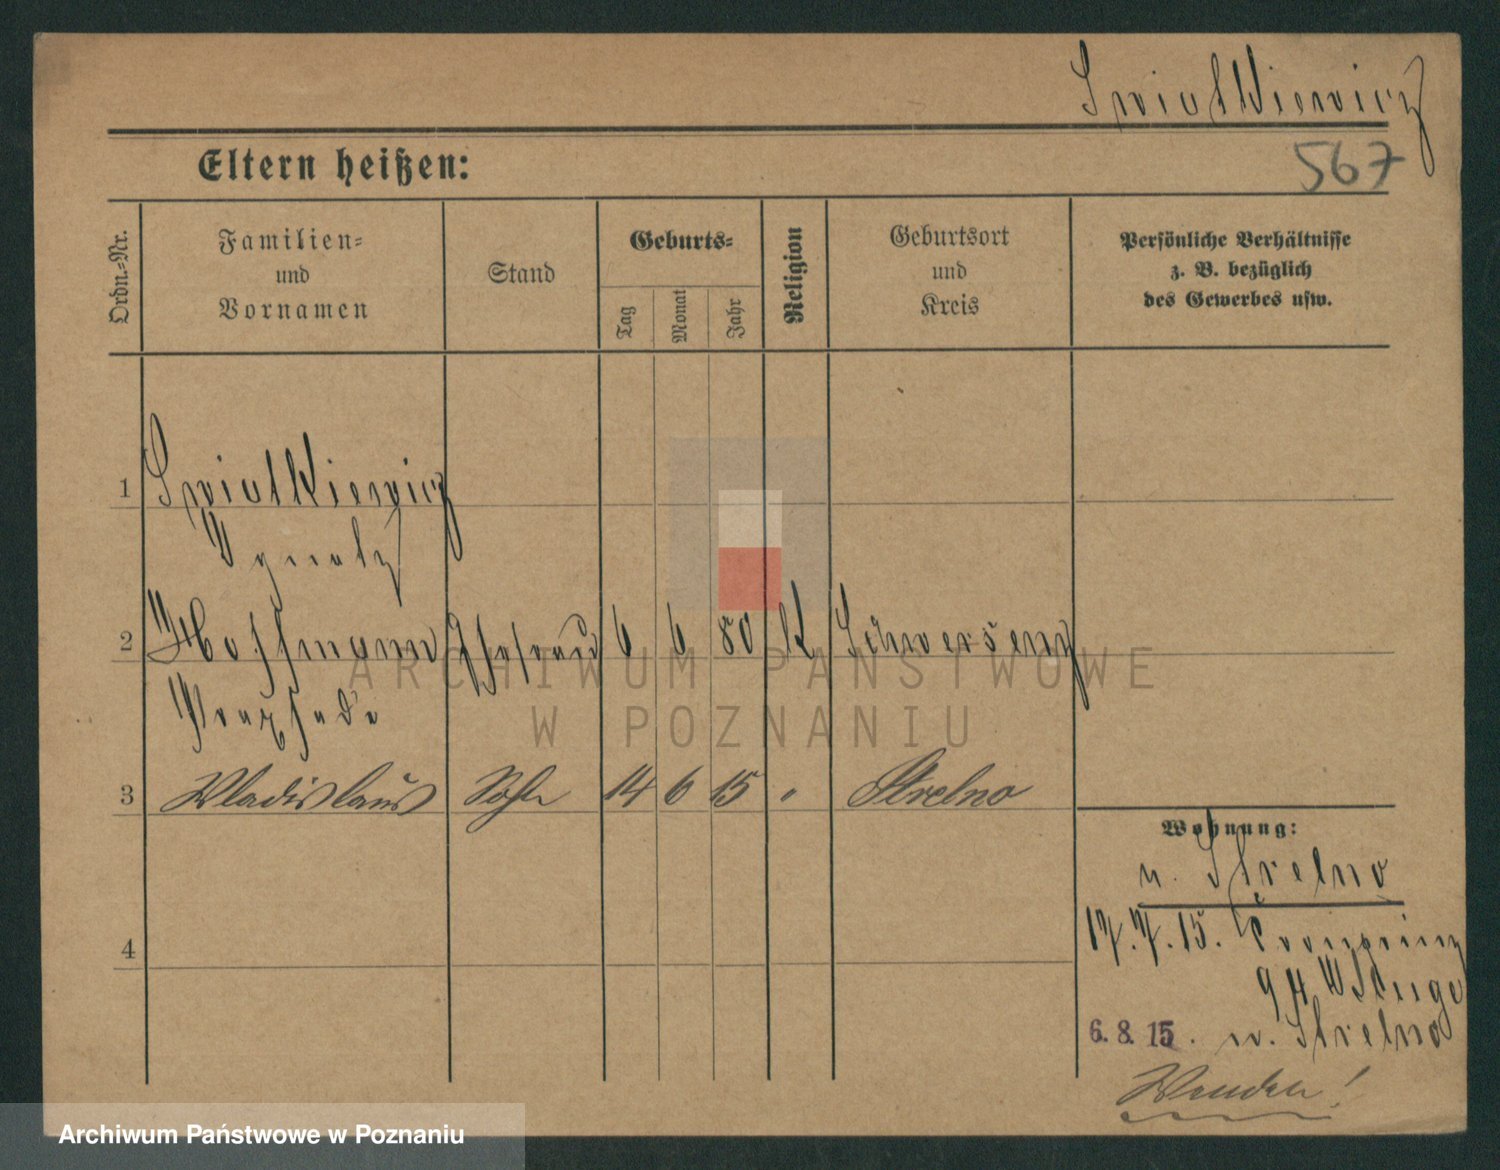 Swiatkiewicz
567
Eltern heißen:
Ordn.=Nr.
Familien=
und
Vornamen
Stand
Geburts=
Tag
Monat
Jahr
Religion
Geburtsort
und
Kreis
Persönliche Verhältnisse
z. B. bezüglich
des Gewerbes usw.
1 Swiatkiewicz
Ignatz
2 Hoffmann Ehefrau 6 6 80 K Schwersenz
Praxseda
3 Wladislaus Sohn 14 6 15 " Strelno
4
Wohnung:
n. Strelno
17.7.15. Kronprinz
94
6.8.15. n. Strelno
Wenden!
ARCHIWUM PAŃSTWOWE
W POZNANIU
Archiwum Państwowe w Poznaniu